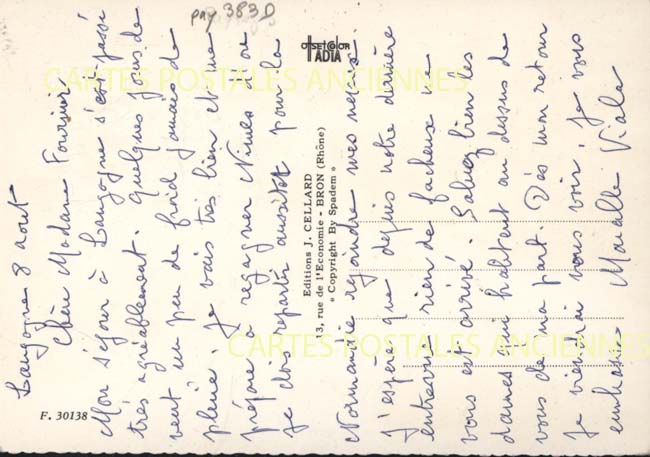 pay 383D
OFFSET COLOR
ADIA
CARTES POSTALES ANCIENNES
Langogne 8 août
Chère Madame Fournier
Mon séjour à Langogne s'est passé
très agréablement. Quelques jours de
vent un peu de froid jamais de
pluie. Je vais très bien et me
prépare à regagner Nimes ou
je dois repartir aussitot pour la
Editions J. CELLARD
13, rue de l'Economie - BRON (Rhône)
« Copyright By Spadem »
Normandie rejoindre mes neveux.
J'espère que depuis notre dernière
entrevue rien de facheux ne
vous est arrivé. Saluez bien les
dames qui habitent au dessus de
vous de ma part. Dès mon retour
Je viendrai vous voir, Je vous
embrasse
Viala
CARTES POSTALES ANCIENNES
F. 30138